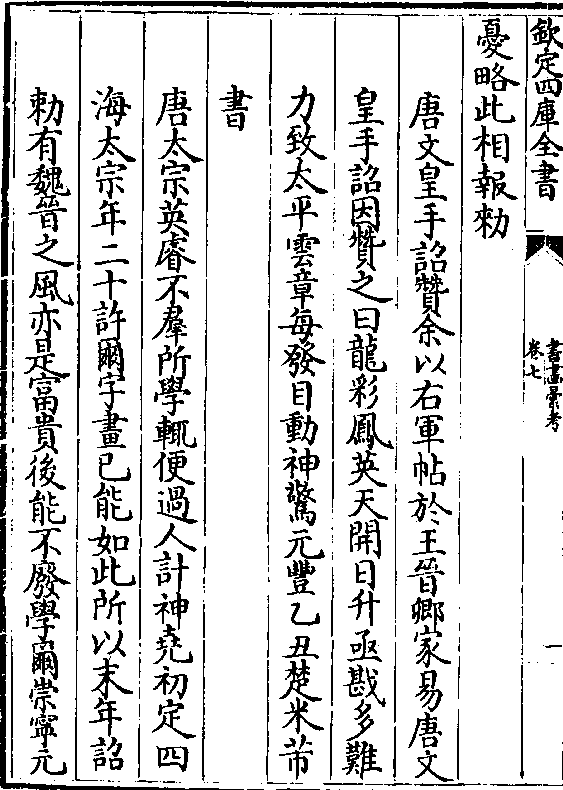 欽定四庫全書
書畫彙考
卷七
一
憂略此相報勅
唐文皇手詔贊余以右軍帖於王晉卿家易唐文
皇手詔因贊之曰龍彩鳳英天開日升亟戡多難
力致太平雲章每發目動神驚元豐乙丑楚米芾
書
唐太宗英睿不羣所學輒便過人計神堯初定四
海太宗年二十許爾字畫已能如此所以末年詔
勅有魏晉之風亦是富貴後能不廢學爾崇寧元